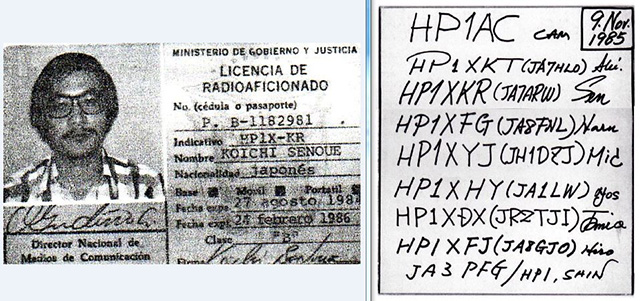 MINISTERIO DE GOBIERNO Y JUSTICIA
LICENCIA DE
RADIOAFICIONADO
No. (cédula o pasaporte)
P. B-1182981
Indicativo HP1X-KR
Nombre KOICHI SENOUE
Nacionalidad japonés
Base Movil Portatil
Fecha exp. 27 agosto 198
Fecha exp. 2 febrero 1986
Clase "B"
Director Nacional de
Medios de Comunicación
HP1AC CAM
9. Nov.
1985
HP1XKT (JA7HLO)
HP1XKR (JA7ARW) Sen
HP1XFG (JA8FNL) Haru
HP1XYJ (JH1DZJ) Mic
HP1XHY (JA1LW)
HP1XDX (JR2TJI)
HP1XFJ (JA8GJO) Hiro
JA3PFG/HP1, SHIN